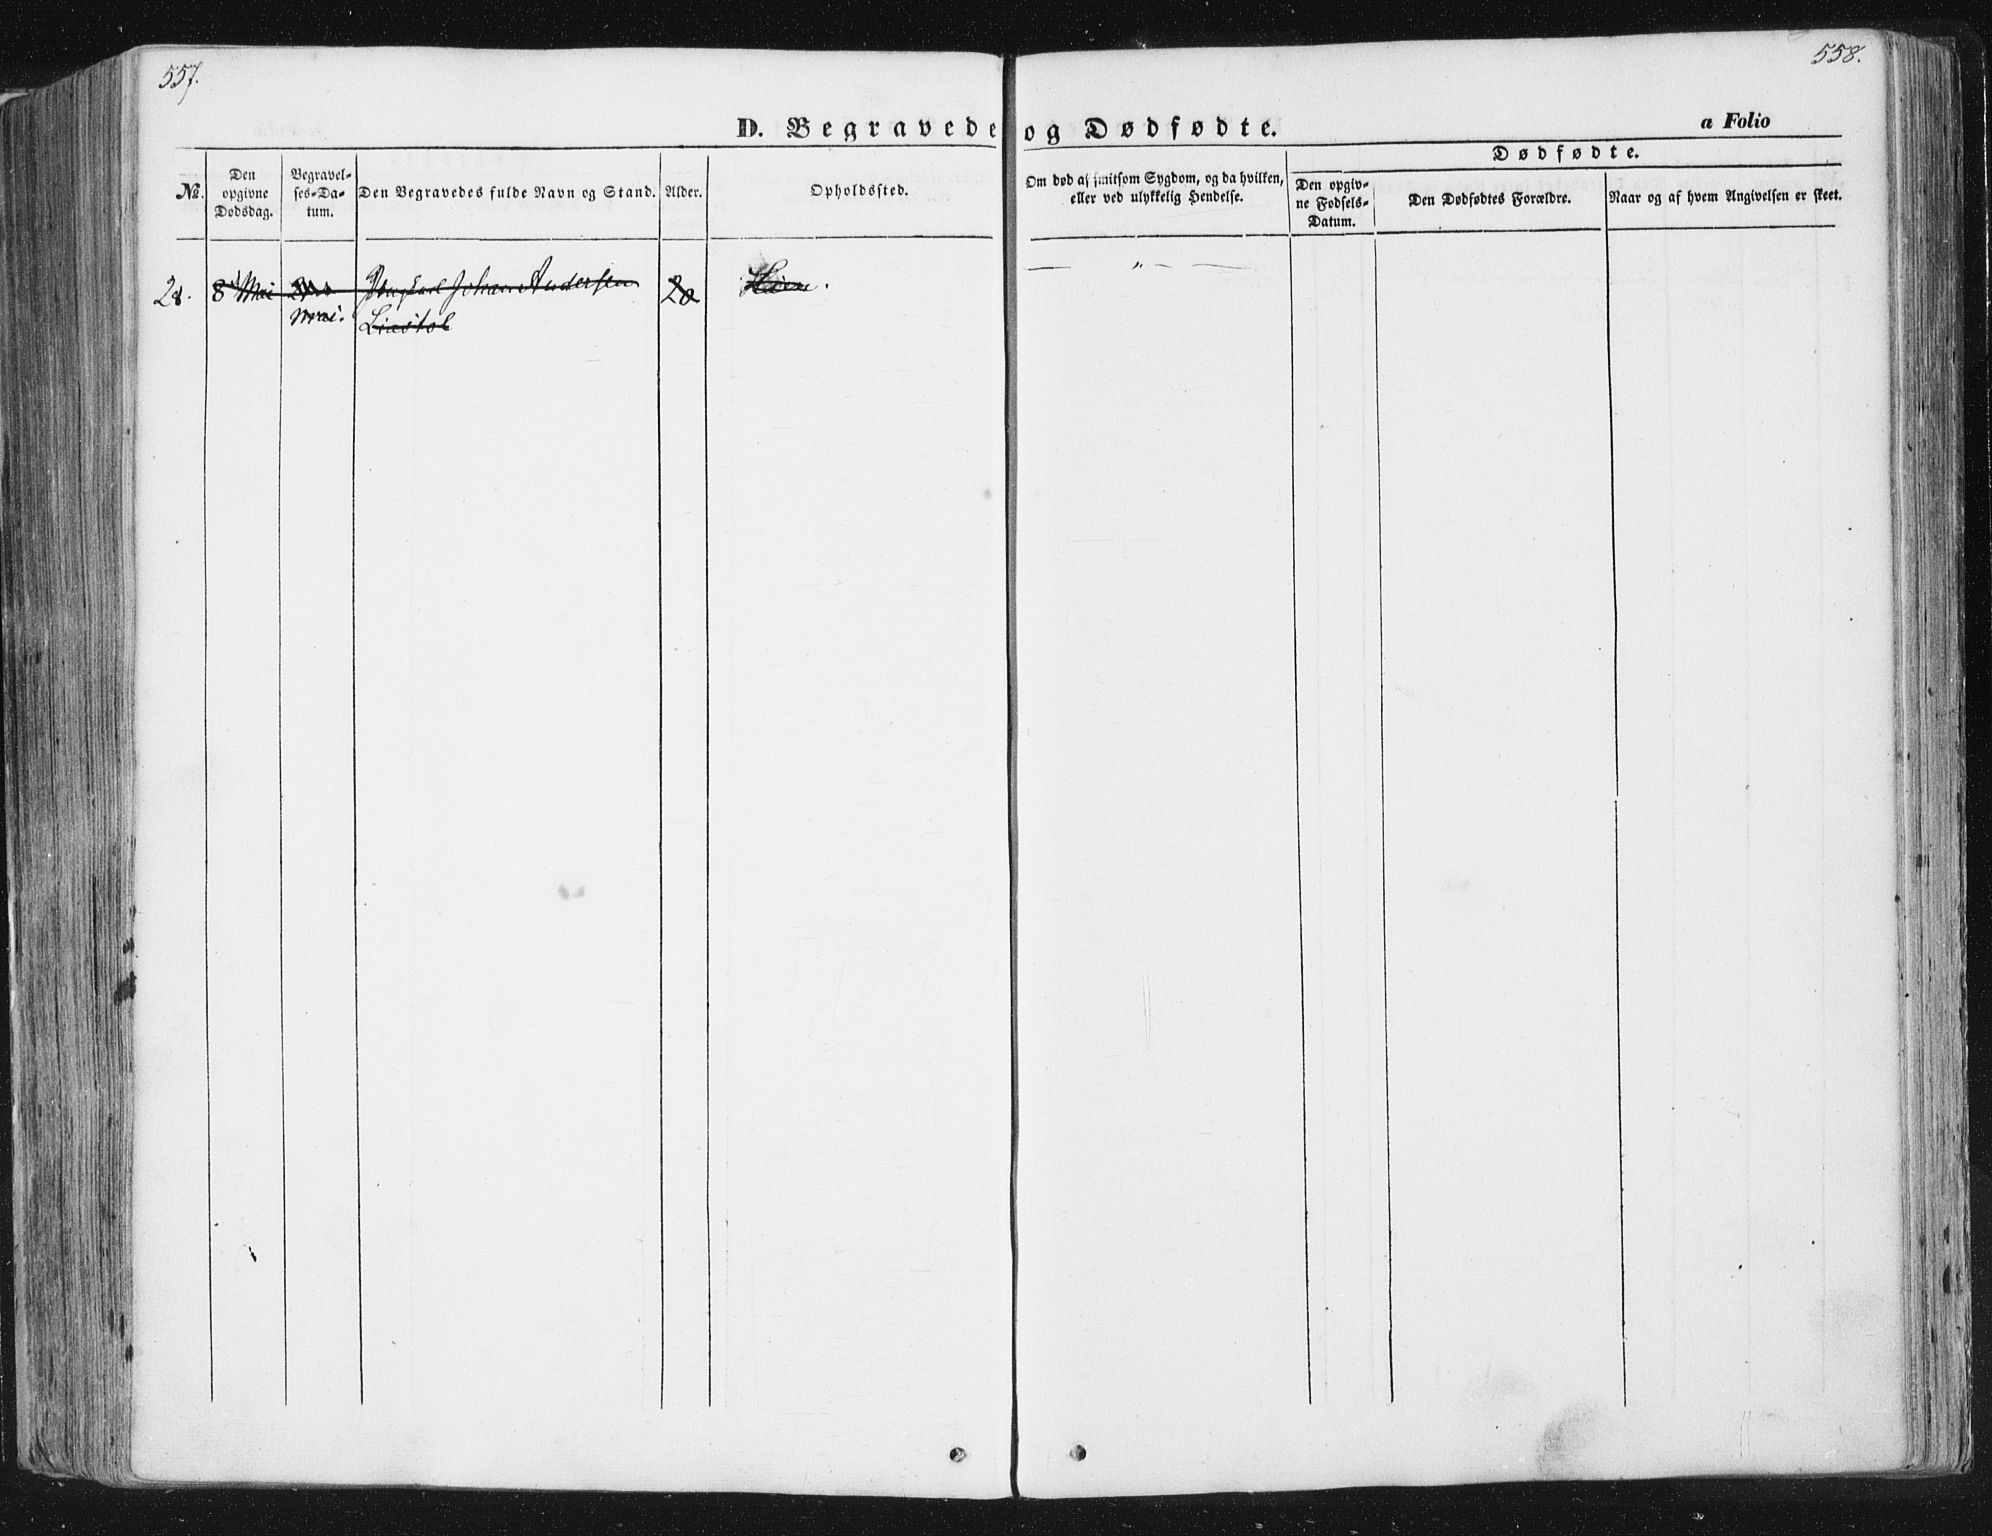 557.
558.
D. Begravede og Dødfødte.
a Folio
No.
Den opgivne Dødsdag.
Begravelses-Datum.
Den Begravedes fulde Navn og Stand.
Alder.
Opholdssted.
Om død af smitsom Sygdom, og da hvilken, eller ved ulykkelig Hendelse.
Dødfødte.
Den opgivne Fødsels-Datum.
Den Dødfødtes Forældre.
Naar og af hvem Angivelsen er skeet.
28.
8 Mai
Mai.
Johan Andersen
Liastøl
28
— " —